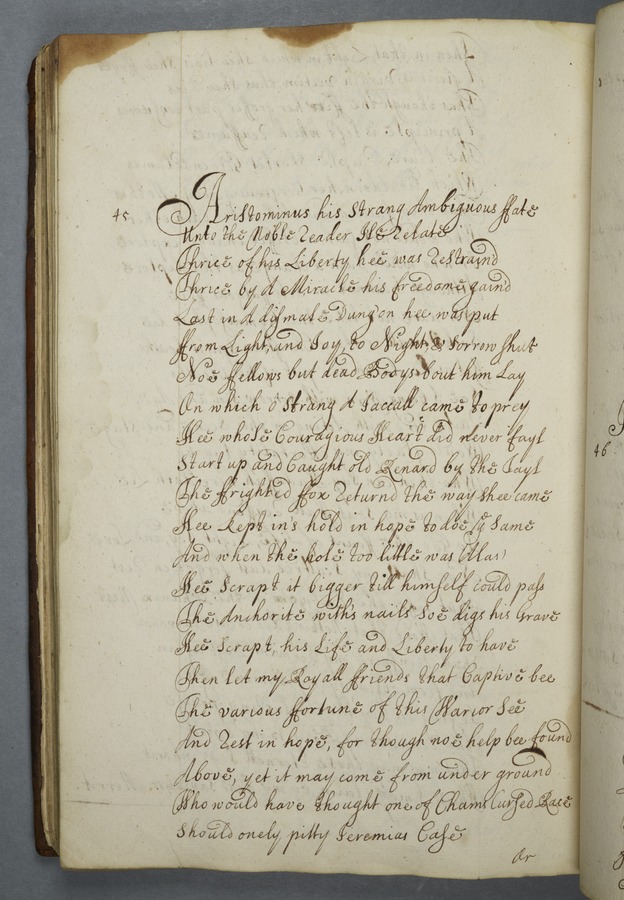 45 Aristominus his strang Ambiguous ffate
Unto the Noble Reader Ile Relate
Thrice of his Liberty hee was Restraind
Thrice by A Miracle his freedome gaind
Last in A dismale Dungon hee was put
ffrom Light, and Joy, to Night & Sorrow shut
Noe ffellows but dead Bodys 'bout him Lay
On which ô strang A Jaccall came to prey
Hee whose Couragious Heart did never fayl
Start up and Caught old Renard by the Tayl
The ffrighted ffox Returnd the way shee came
Hee kept ins hold in hope to doe ye same
And when the hole too little was (Alas)
Hee Scrapt it bigger till himself could pass
The Anchorite with's nails Soe digs his Grave
Hee Scrapt, his Life and Liberty to have
Then let my Royall ffriends that Captive bee
The various ffortune of this Warior See
And Rest in hope, for though noe help bee found
Above, yet it may come from under ground
Who would have thought one of Chams Cursed Race
Should onely pitty Jeremias Case
Or
46